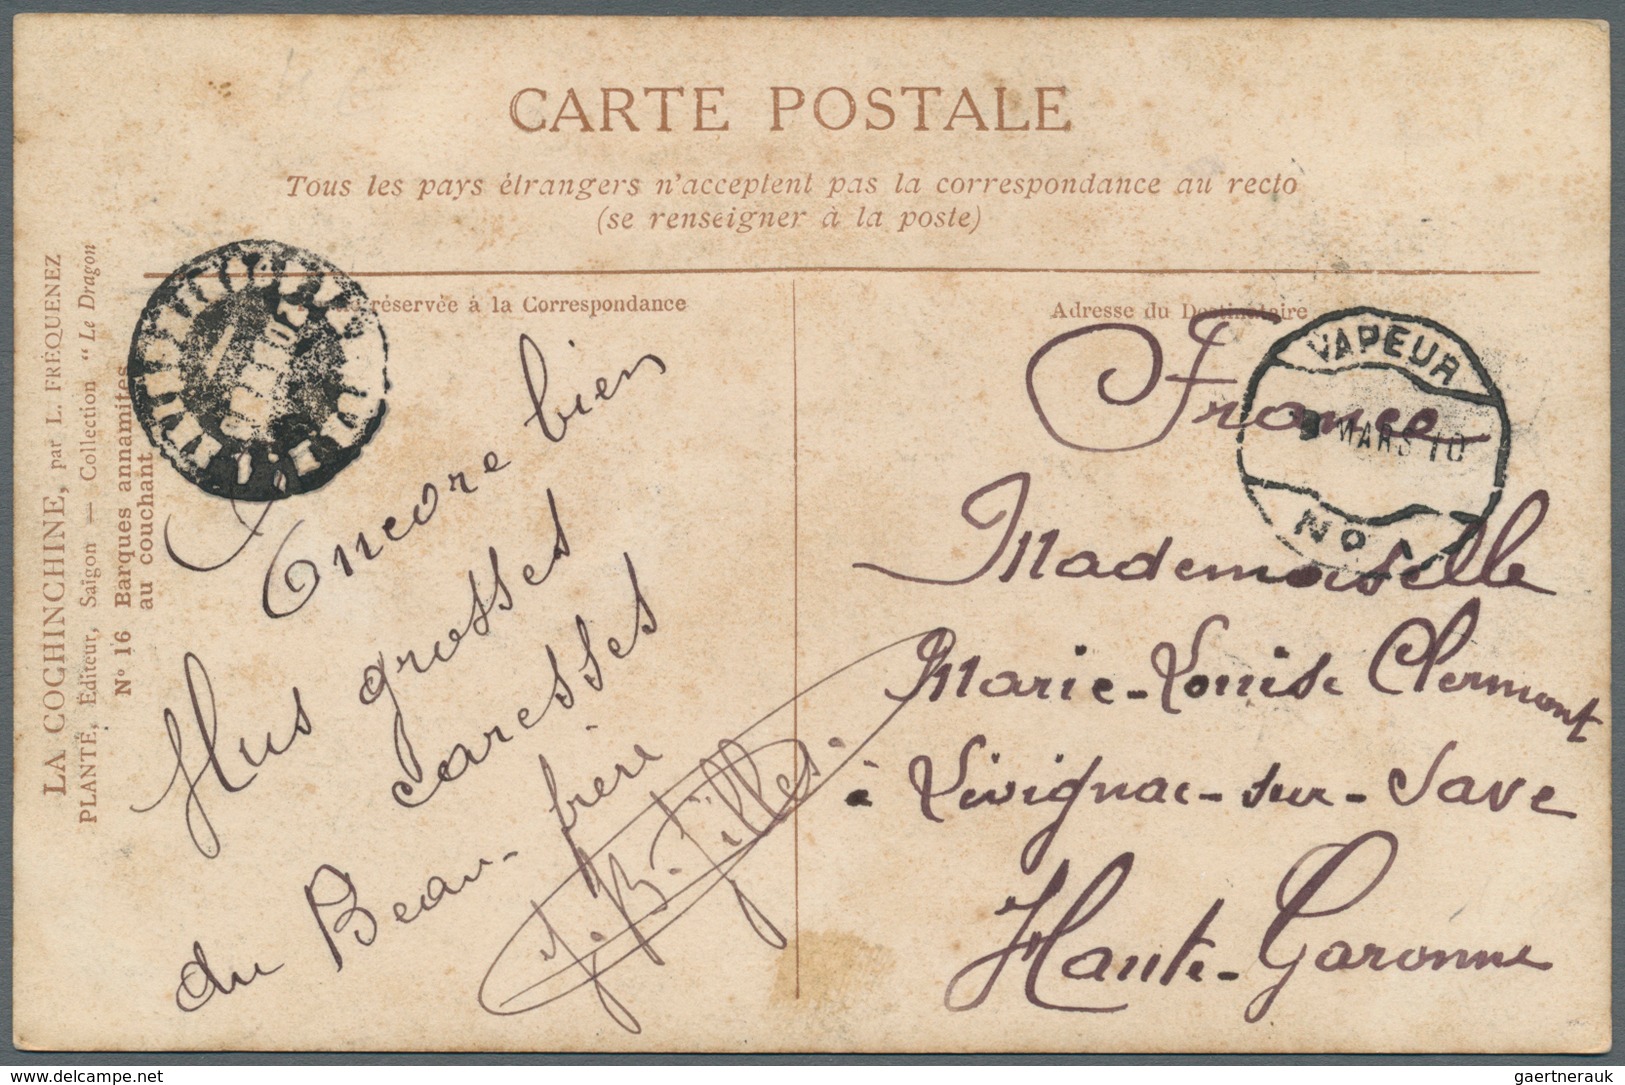 CARTE POSTALE
Tous les pays étrangers n'acceptent pas la correspondance au recto
(se renseigner à la poste)
LA COCHINCHINE, par L. FRÉQUENEZ
PLANTÉ, Éditeur, Saigon — Collection "Le Dragon
N° 16 Barques annamites
au couchant
réservée à la Correspondance
Encore bien
plus grosses
caresses
du Beau-frère
Adresse du Destinataire
VAPEUR
MARS 10
No 1
France
Mademoiselle
Marie-Louise Clermont
à Lévignac-sur-Save
Haute-Garonne
www.delcampe.net
gaertnerauk